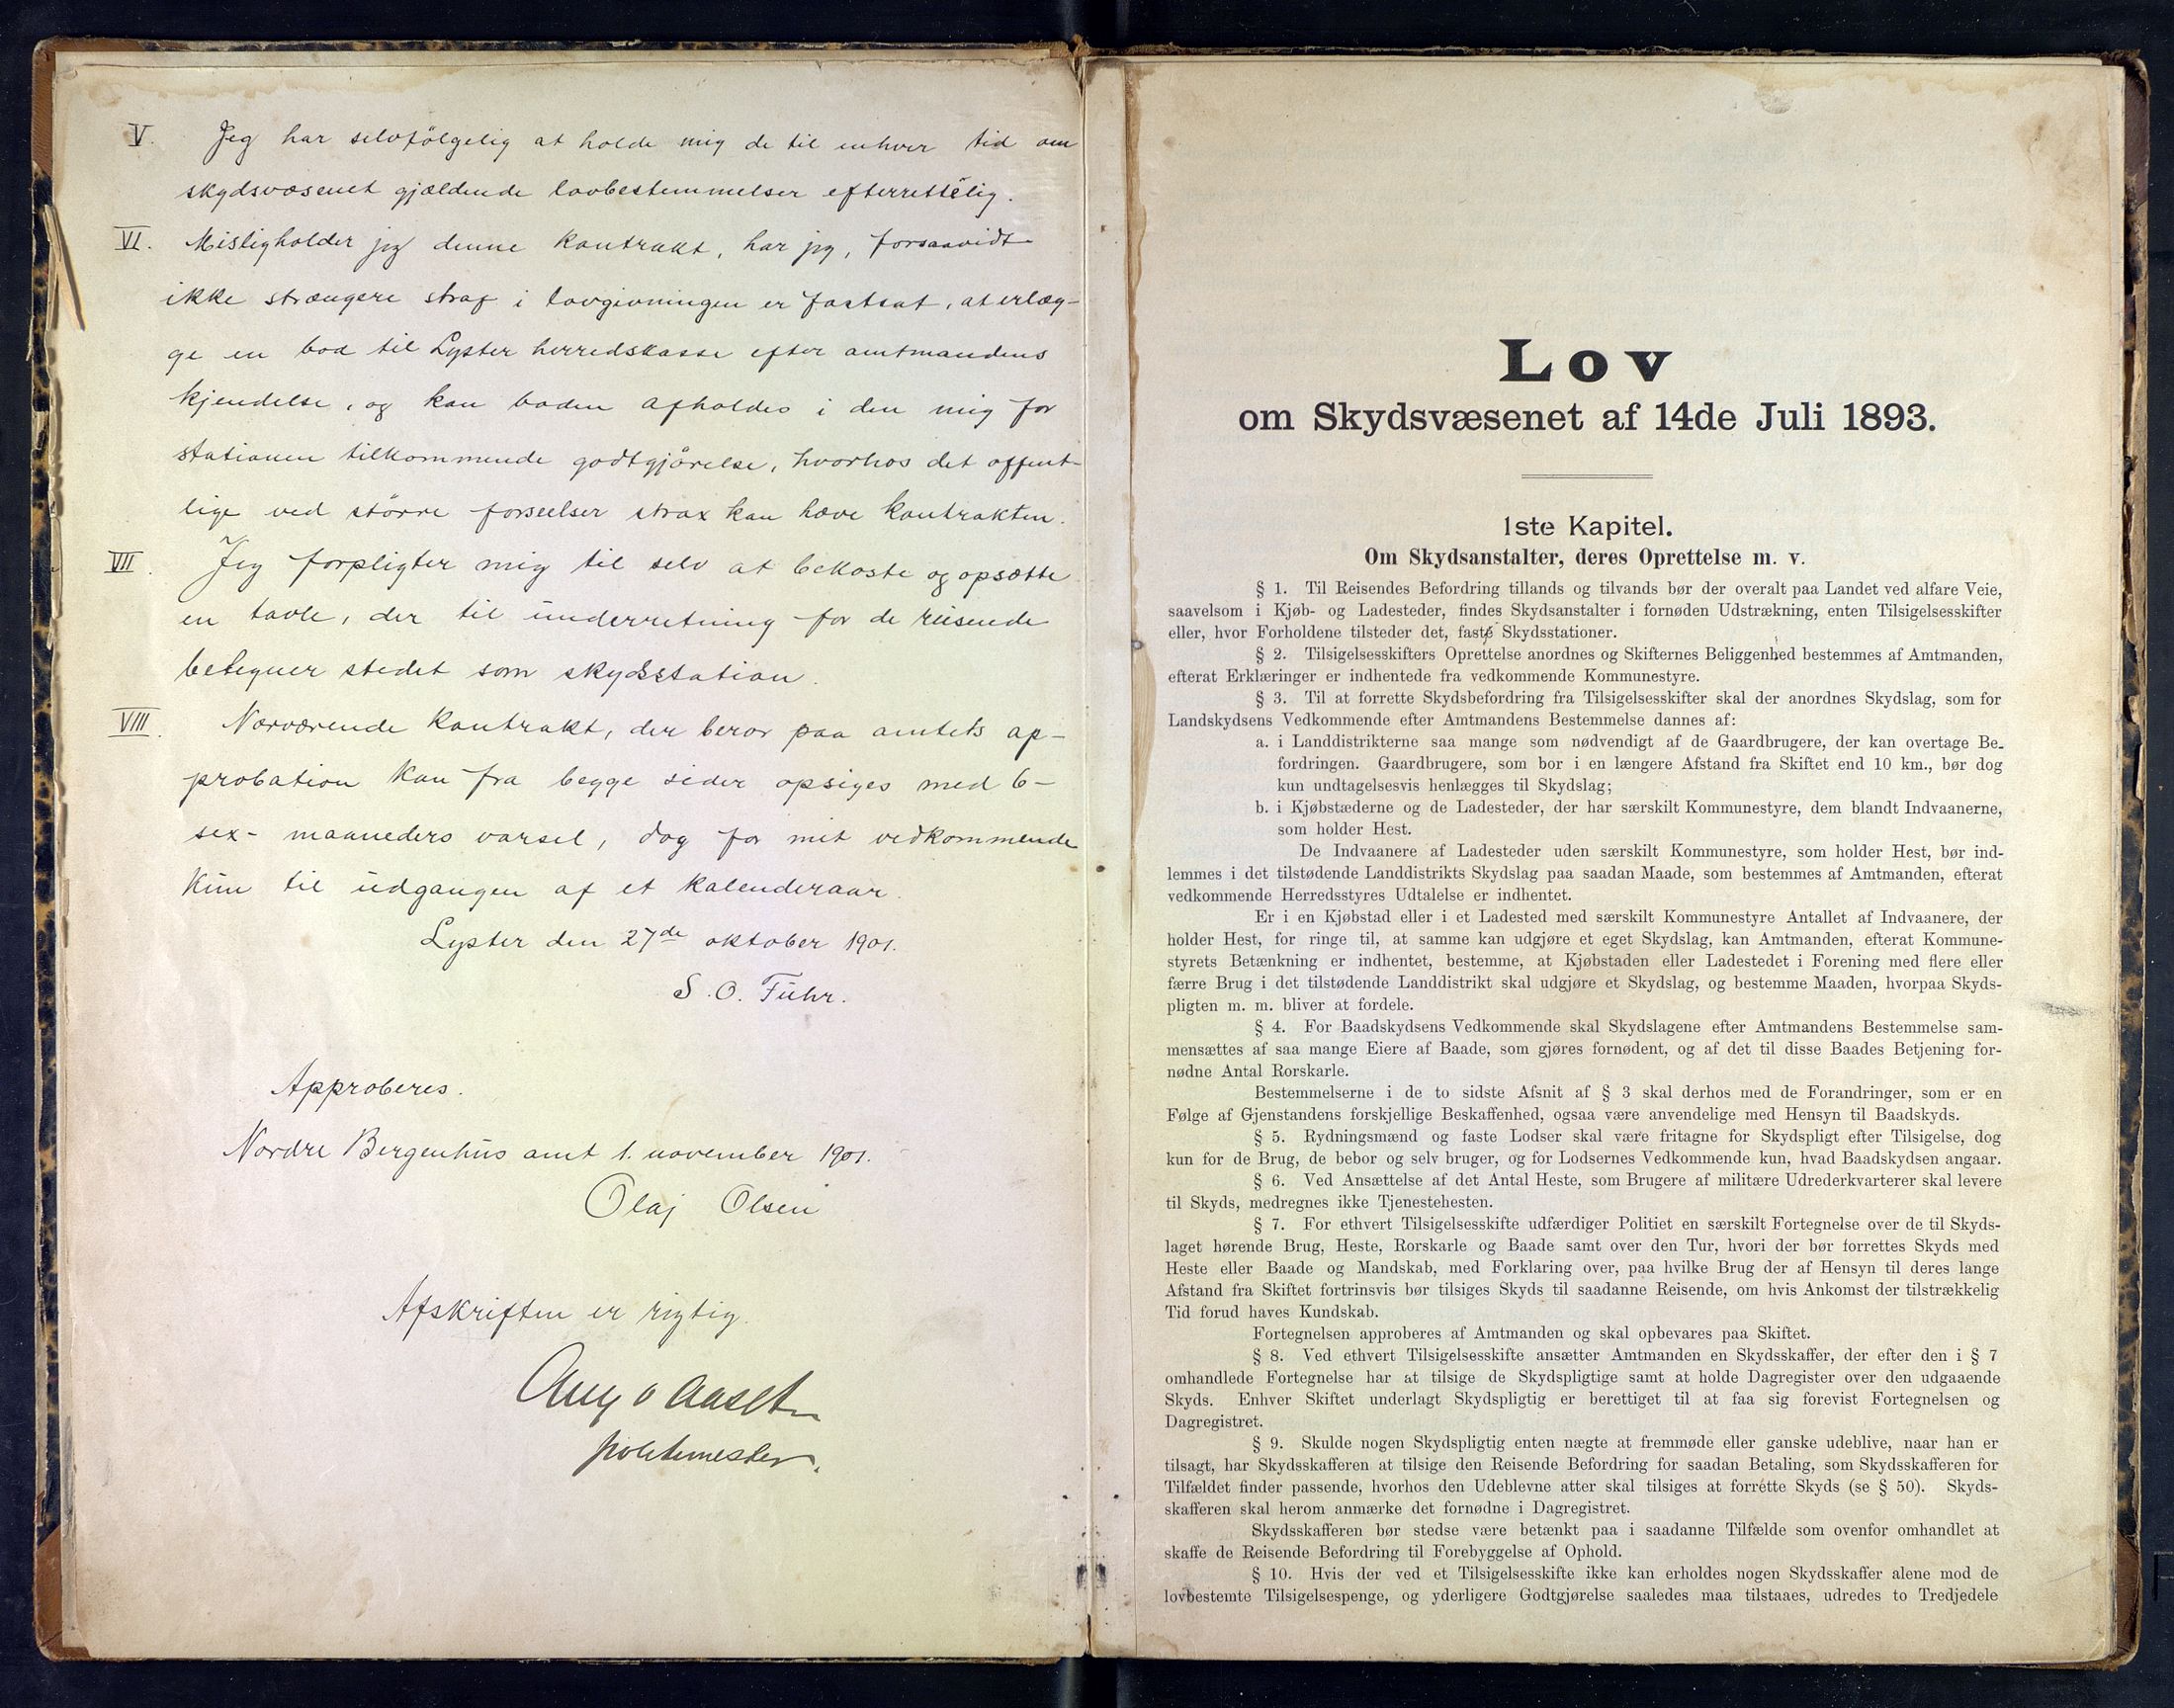 V. Jeg har selvfölgelig at holde mig de til enhver tid om
skydsvæsenet gjældende lovbestemmelser efterrettelig.
VI. Misligholder jeg denne kontrakt, har jeg, forsaavidt
ikke strængere straf i lovgivningen er fastsat, at erlæg-
ge en bod til Lyster herredskasse efter amtmandens
kjendelse, og kan boden afholdes i den mig for
stationen tilkommende godtgjörelse, hvorhos det offent-
lige ved större forseelser strax kan hæve kontrakten.
VII. Jeg forpligter mig til selv at bekoste og opsætte
en tavle, der til underretning for de reisende
betegner stedet som skydsstation.
VIII. Nærværende kontrakt, der beror paa amtets ap-
probation kan fra begge sider opsiges med 6-
sex- maaneders varsel, dog for mit vedkommende
kun til udgangen af et kalenderaar.
Lyster den 27de oktober 1901.
S. O. Fuhr.
Approberes.
Nordre Bergenhus amt 1. november 1901.
Olaj Olsen
Afskriften er rigtig.
politimester.
Lov
om Skydsvæsenet af 14de Juli 1893.
1ste Kapitel.
Om Skydsanstalter, deres Oprettelse m. v.
§ 1. Til Reisendes Befordring tillands og tilvands bør der overalt paa Landet ved alfare Veie,
saavelsom i Kjøb- og Ladesteder, findes Skydsanstalter i fornøden Udstrækning, enten Tilsigelsesskifter
eller, hvor Forholdene tilsteder det, faste Skydsstationer.
§ 2. Tilsigelsesskifters Oprettelse anordnes og Skifternes Beliggenhed bestemmes af Amtmanden,
efterat Erklæringer er indhentede fra vedkommende Kommunestyre.
§ 3. Til at forrette Skydsbefordring fra Tilsigelsesskifter skal der anordnes Skydslag, som for
Landskydsens Vedkommende efter Amtmandens Bestemmelse dannes af:
a. i Landdistrikterne saa mange som nødvendigt af de Gaardbrugere, der kan overtage Be-
fordringen. Gaardbrugere, som bor i en længere Afstand fra Skiftet end 10 km., bør dog
kun undtagelsesvis henlægges til Skydslag;
b. i Kjøbstæderne og de Ladesteder, der har særskilt Kommunestyre, dem blandt Indvaanerne,
som holder Hest.
De Indvaanere af Ladesteder uden særskilt Kommunestyre, som holder Hest, bør ind-
lemmes i det tilstødende Landdistrikts Skydslag paa saadan Maade, som bestemmes af Amtmanden, efterat
vedkommende Herredsstyres Udtalelse er indhentet.
Er i en Kjøbstad eller i et Ladested med særskilt Kommunestyre Antallet af Indvaanere, der
holder Hest, for ringe til, at samme kan udgjøre et eget Skydslag, kan Amtmanden, efterat Kommune-
styrets Betænkning er indhentet, bestemme, at Kjøbstaden eller Ladestedet i Forening med flere eller
færre Brug i det tilstødende Landdistrikt skal udgjøre et Skydslag, og bestemme Maaden, hvorpaa Skyds-
pligten m. m. bliver at fordele.
§ 4. For Baadskydsens Vedkommende skal Skydslagene efter Amtmandens Bestemmelse sam-
mensættes af saa mange Eiere af Baade, som gjøres fornødent, og af det til disse Baades Betjening for-
nødne Antal Rorskarle.
Bestemmelserne i de to sidste Afsnit af § 3 skal derhos med de Forandringer, som er en
Følge af Gjenstandens forskjellige Beskaffenhed, ogsaa være anvendelige med Hensyn til Baadskyds.
§ 5. Rydningsmænd og faste Lodser skal være fritagne for Skydspligt efter Tilsigelse, dog
kun for de Brug, de bebor og selv bruger, og for Lodsernes Vedkommende kun, hvad Baadskydsen angaar.
§ 6. Ved Ansættelse af det Antal Heste, som Brugere af militære Udrederkvarterer skal levere
til Skyds, medregnes ikke Tjenestehesten.
§ 7. For ethvert Tilsigelsesskifte udfærdiger Politiet en særskilt Fortegnelse over de til Skyds-
laget hørende Brug, Heste, Rorskarle og Baade samt over den Tur, hvori der bør forrettes Skyds med
Heste eller Baade og Mandskab, med Forklaring over, paa hvilke Brug der af Hensyn til deres lange
Afstand fra Skiftet fortrinsvis bør tilsiges Skyds til saadanne Reisende, om hvis Ankomst der tilstrækkelig
Tid forud haves Kundskab.
Fortegnelsen approberes af Amtmanden og skal opbevares paa Skiftet.
§ 8. Ved ethvert Tilsigelsesskifte ansætter Amtmanden en Skydsskaffer, der efter den i § 7
omhandlede Fortegnelse har at tilsige de Skydspligtige samt at holde Dagregister over den udgaaende
Skyds. Enhver Skiftet underlagt Skydspligtig er berettiget til at faa sig forevist Fortegnelsen og
Dagregistret.
§ 9. Skulde nogen Skydspligtig enten nægte at fremmøde eller ganske udeblive, naar han er
tilsagt, har Skydsskafferen at tilsige den Reisende Befordring for saadan Betaling, som Skydsskafferen for
Tilfældet finder passende, hvorhos den Udeblevne atter skal tilsiges at forrette Skyds (se § 50). Skyds-
skafferen skal herom anmærke det fornødne i Dagregistret.
Skydsskafferen bør stedse være betænkt paa i saadanne Tilfælde som ovenfor omhandlet at
skaffe de Reisende Befordring til Forebyggelse af Ophold.
§ 10. Hvis der ved et Tilsigelsesskifte ikke kan erholdes nogen Skydsskaffer alene mod de
lovbestemte Tilsigelsespenge, og yderligere Godtgjørelse saaledes maa tilstaaes, udredes to Tredjedele